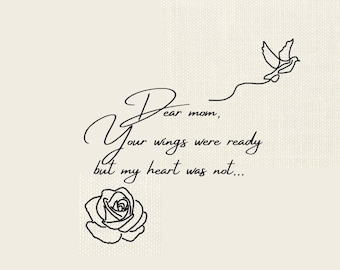 Dear mom,
Your wings were ready
but my heart was not...